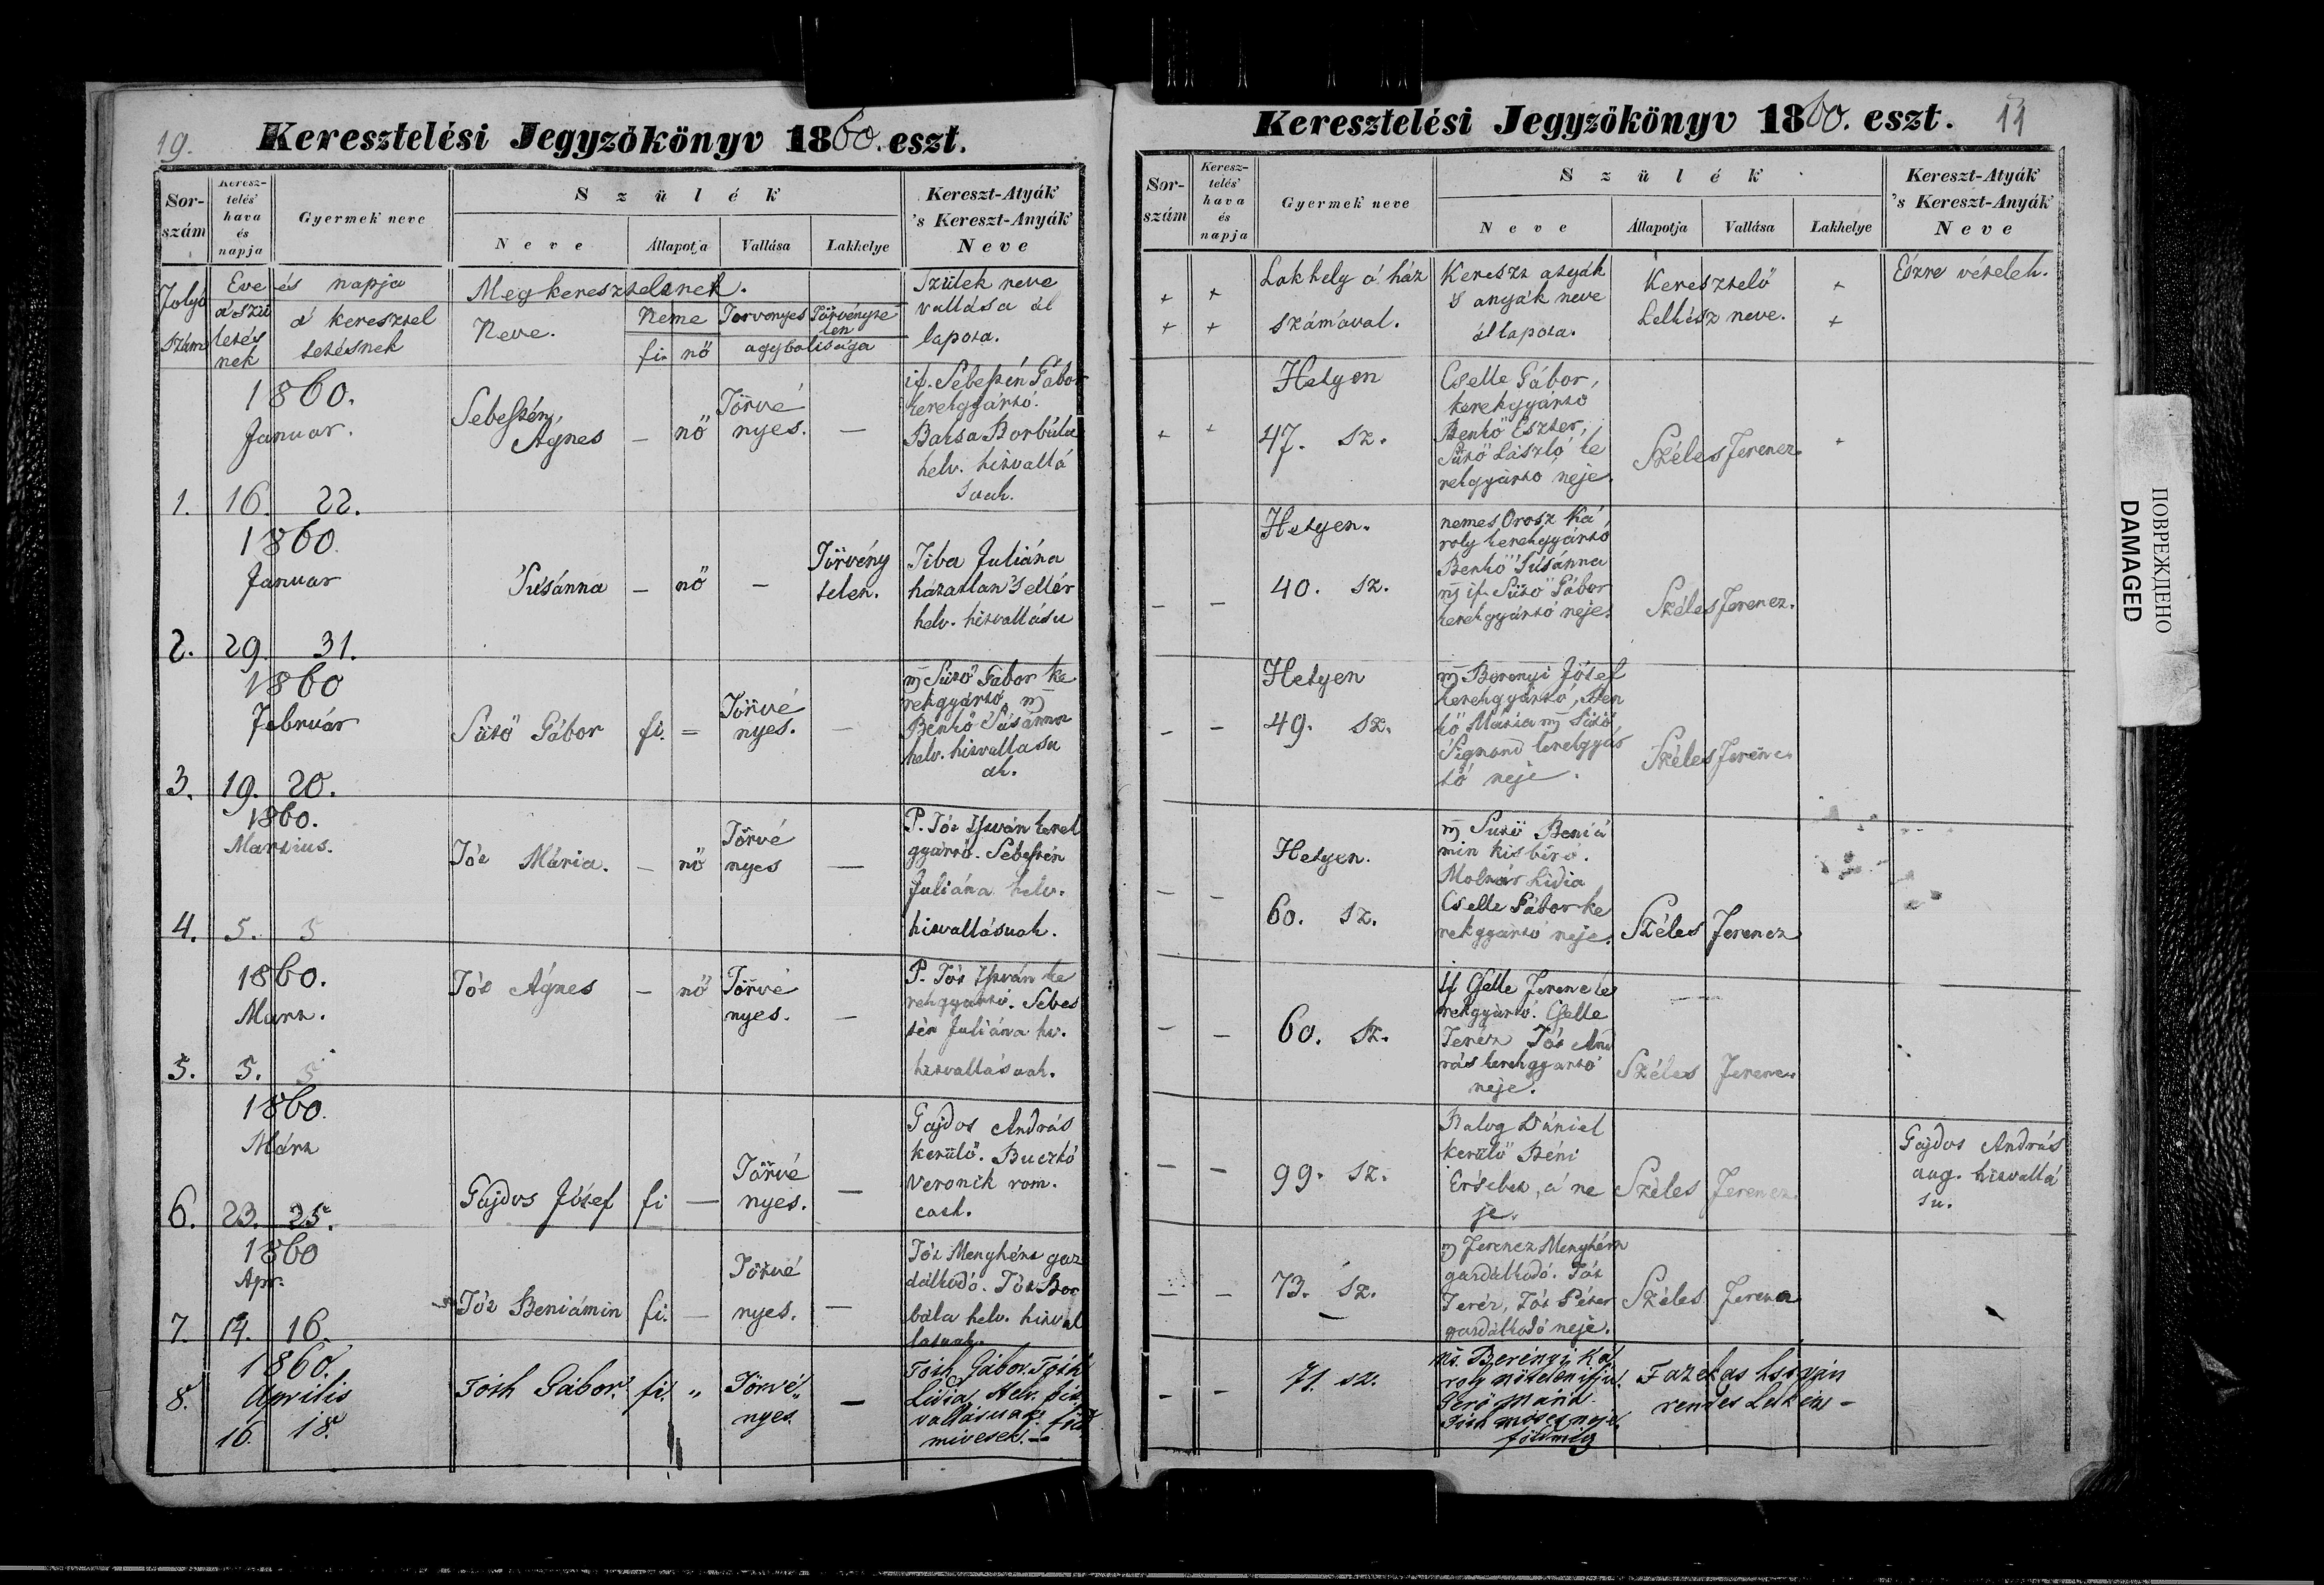 19.
Keresztelési Jegyzőkönyv 1860. eszt.
Sor-
szám
Keresz-
telés'
hava
és
napja
Gyermek neve
Szülék
Neve
Állapotja
Vallása
Lakhelye
Kereszt-Atyák
's Kereszt-Anyák
Neve
Folyó
szám
Eve és napja
a' szü
letés
nek
a' keresztel
tetésnek
Megkereszteltnek.
Neve.
Neme
fi. nő
Törvenyes
Törvényte
len
agybolisága
Szülek neve
vallása ál
lapota.
1860.
Januar.
1. 16. 22.
Sebestén
Agnes
–
nő
Törvé
nyes.
–
if. Sebestén Gábor
kerekgyártó.
Barsa Borbála
helv. hitvallá
suak.
1860.
Januar
2. 29. 31.
Susánna
–
nő
–
Törvény
telen.
Tiba Juliána
házatlan 's ellér
helv. hitvallásu
1860
Február
3. 19. 20.
Sütö Gábor
fi.
=
Törvé
nyes.
–
Sütö Gábor ke
rekgyártó,
Benkö Súsánna
helv. hitvallasu
ak.
1860.
Martius.
4. 5. 5
Tót Mária.
–
nő
Törvé
nyes
–
P. Tót István kerek
gyártó. Sebestén
Juliána helv.
hitvallásuak.
1860.
Mart.
5. 5. 5
Tót Ágnes
–
nő
Törvé
nyes.
–
P. Tót István ke
rekgyártó. Sebes
tén Juliána hv.
hitvallásuak.
1860.
Márt
6. 23. 25.
Gajdos Jósef
fi
–
Törvé
nyes.
–
Gajdos András
kerülő. Buczkó
Veronik rom.
cath.
1860
Apr.
7. 14. 16.
Tót Beniámin
fi.
–
Törvé
nyes.
–
Tót Menyhért gaz
dálkodó. Tót Bor
bála helv. hitval
lásuak.
1860.
8. Aprilis
16. 18.
Tóth Gábor.
fi.
"
Törvé
nyes.
–
Tóth Gábor. Tóth
Lidia, Helv. hit
vallásuak. föld
mivesek. –
Keresztelési Jegyzőkönyv 1860. eszt.
Sor-
szám
Keresz-
telés'
hava
és
napja
Gyermek neve
Szülék
Neve
Állapotja
Vallása
Lakhelye
Kereszt-Atyák
's Kereszt-Anyák
Neve
+ +
+ +
Lakhely a' ház
számával.
Kereszt atyák
's anyák neve
állapota.
Keresztelő
Lelkész neve.
+
+
Észre vételek.
+ +
Helyen
47. sz.
Cselle Gábor,
kerekgyártó
Benkö Eszter,
Sütö László ke
rekgyártó neje.
Széles Ferencz.
+
– –
Helyen.
40. sz.
nemes Orosz Ká
roly kerekgyártó
Benkö Súsánna
if. Sütö Gábor
kerekgyártó neje.
Széles Ferencz.
– –
Helyen
49. sz.
Berenyi Jósef
kerekgyártó, Ben
kö Mária Sütö
Sigmond kerekgyár
tó neje.
Széles Ferencz
– –
Helyen.
60. sz.
Sütö Beniá
min kisbiró.
Molnár Lidia
Cselle Gábor ke
rekgyártó neje.
Széles Ferencz
– –
60. sz.
if Cselle Ferencz ke
rekgyártó. Cselle
Teréz Tót And
rás kerekgyártó
neje.
Széles Ferencz
– –
99. sz.
Balog Dániel
kerülő Béni
Ersebet, a' ne
je.
Széles Ferencz.
Gajdos András
aug. hitvallá
su.
– –
73. sz.
Ferencz Menyhért
gazdálkodó. Tót
Teréz, Tót Péter
gazdálkodó neje.
Széles Ferencz
– –
71. sz.
Berényi Ká
roly nötelen ifju.
Gerö Mária
Tóth Móses neje
földmiv
Fazekas István
rendes Lelkész –
ПОВРЕЖДЕНО
DAMAGED